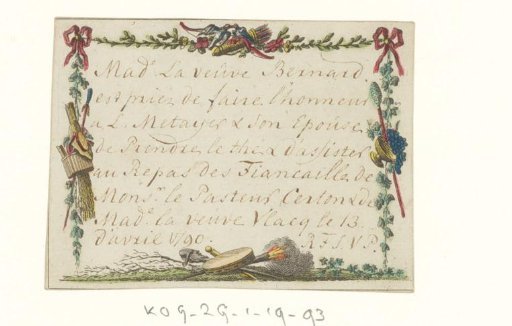 Mad.e La veuve Bernard
est priez de faire l'honneur
a L. Metayer & son Epouse
de Prendre le thé & d'assister
au Repas des Fiancaille de
Mons.r le Pasteur Certon & de
Mad.e la veuve Vlacq le 13.
d'avril 1790. R.F.S.V.P.
KOG-ZG-1-19-93